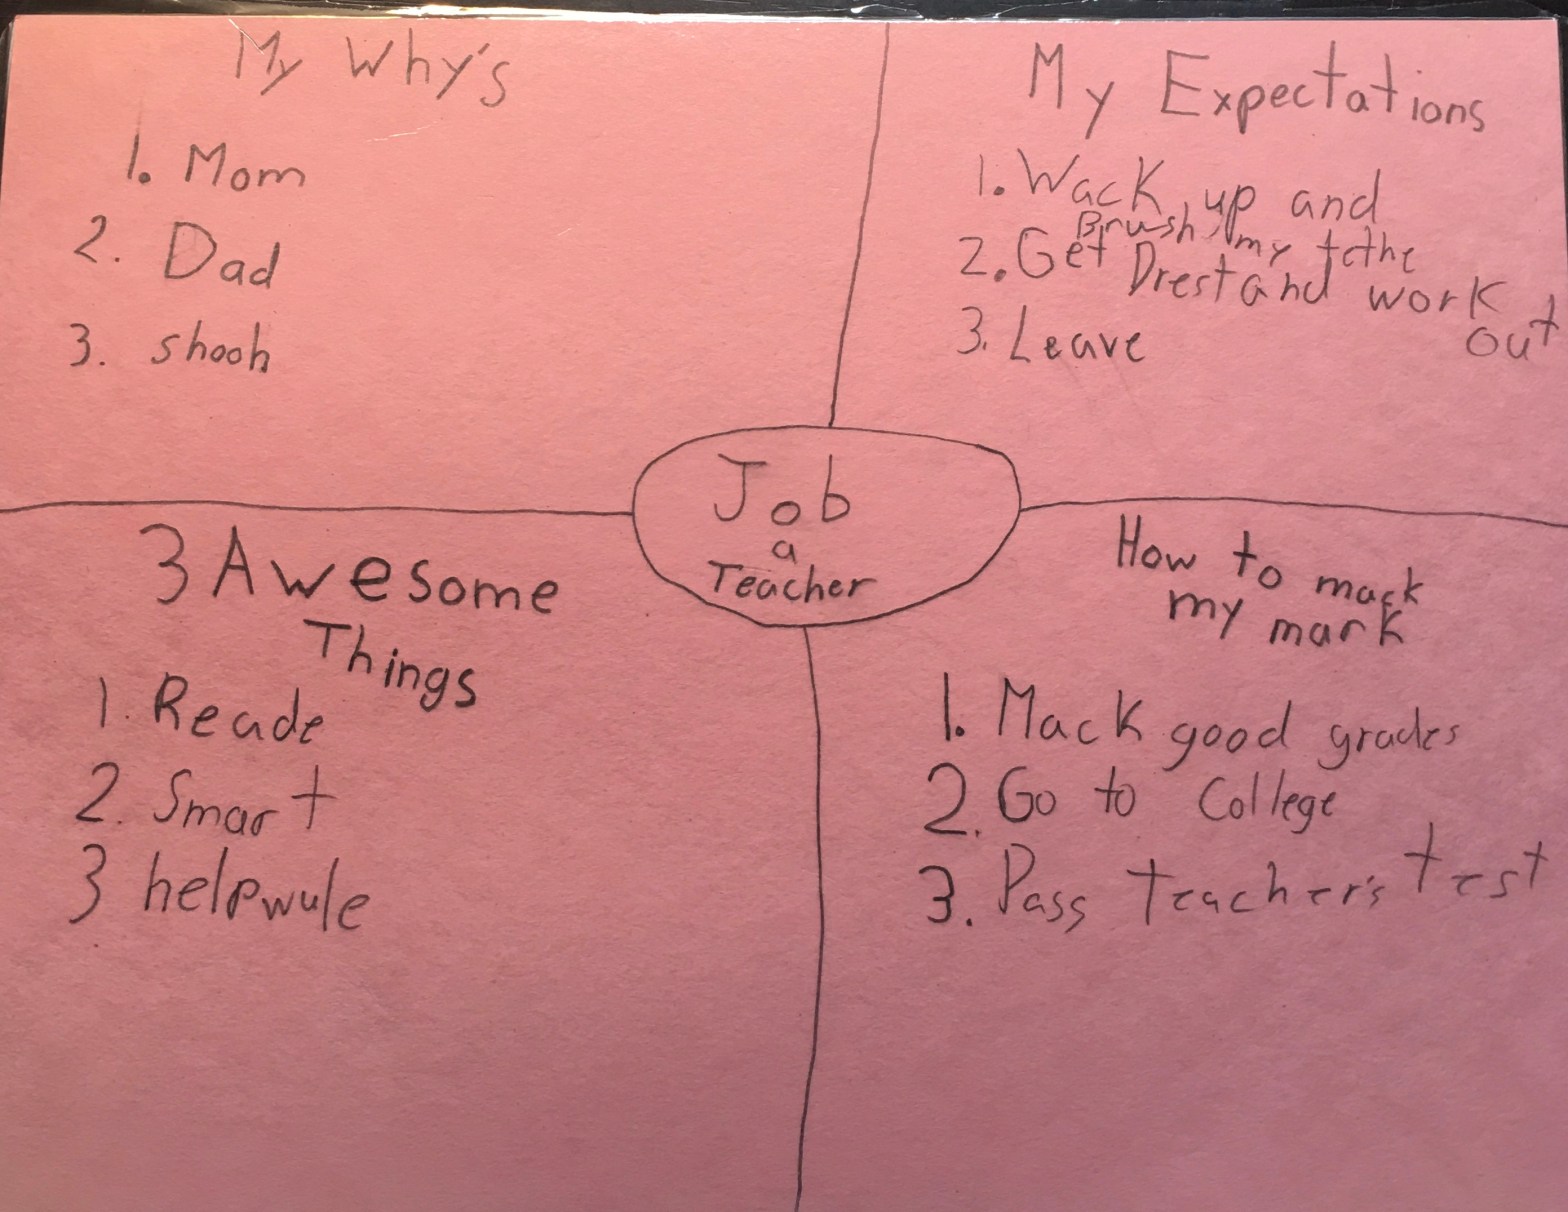 My Why's
1. Mom
2. Dad
3. shooh
My Expectations
1. Wack up and
Brush my tethe
2. Get Drest and work
out
3. Leave
Job
a
Teacher
3 Awesome
Things
1. Reade
2. Smart
3 helpwule
How to mack
my mark
1. Mack good grades
2. Go to College
3. Pass teacher's test